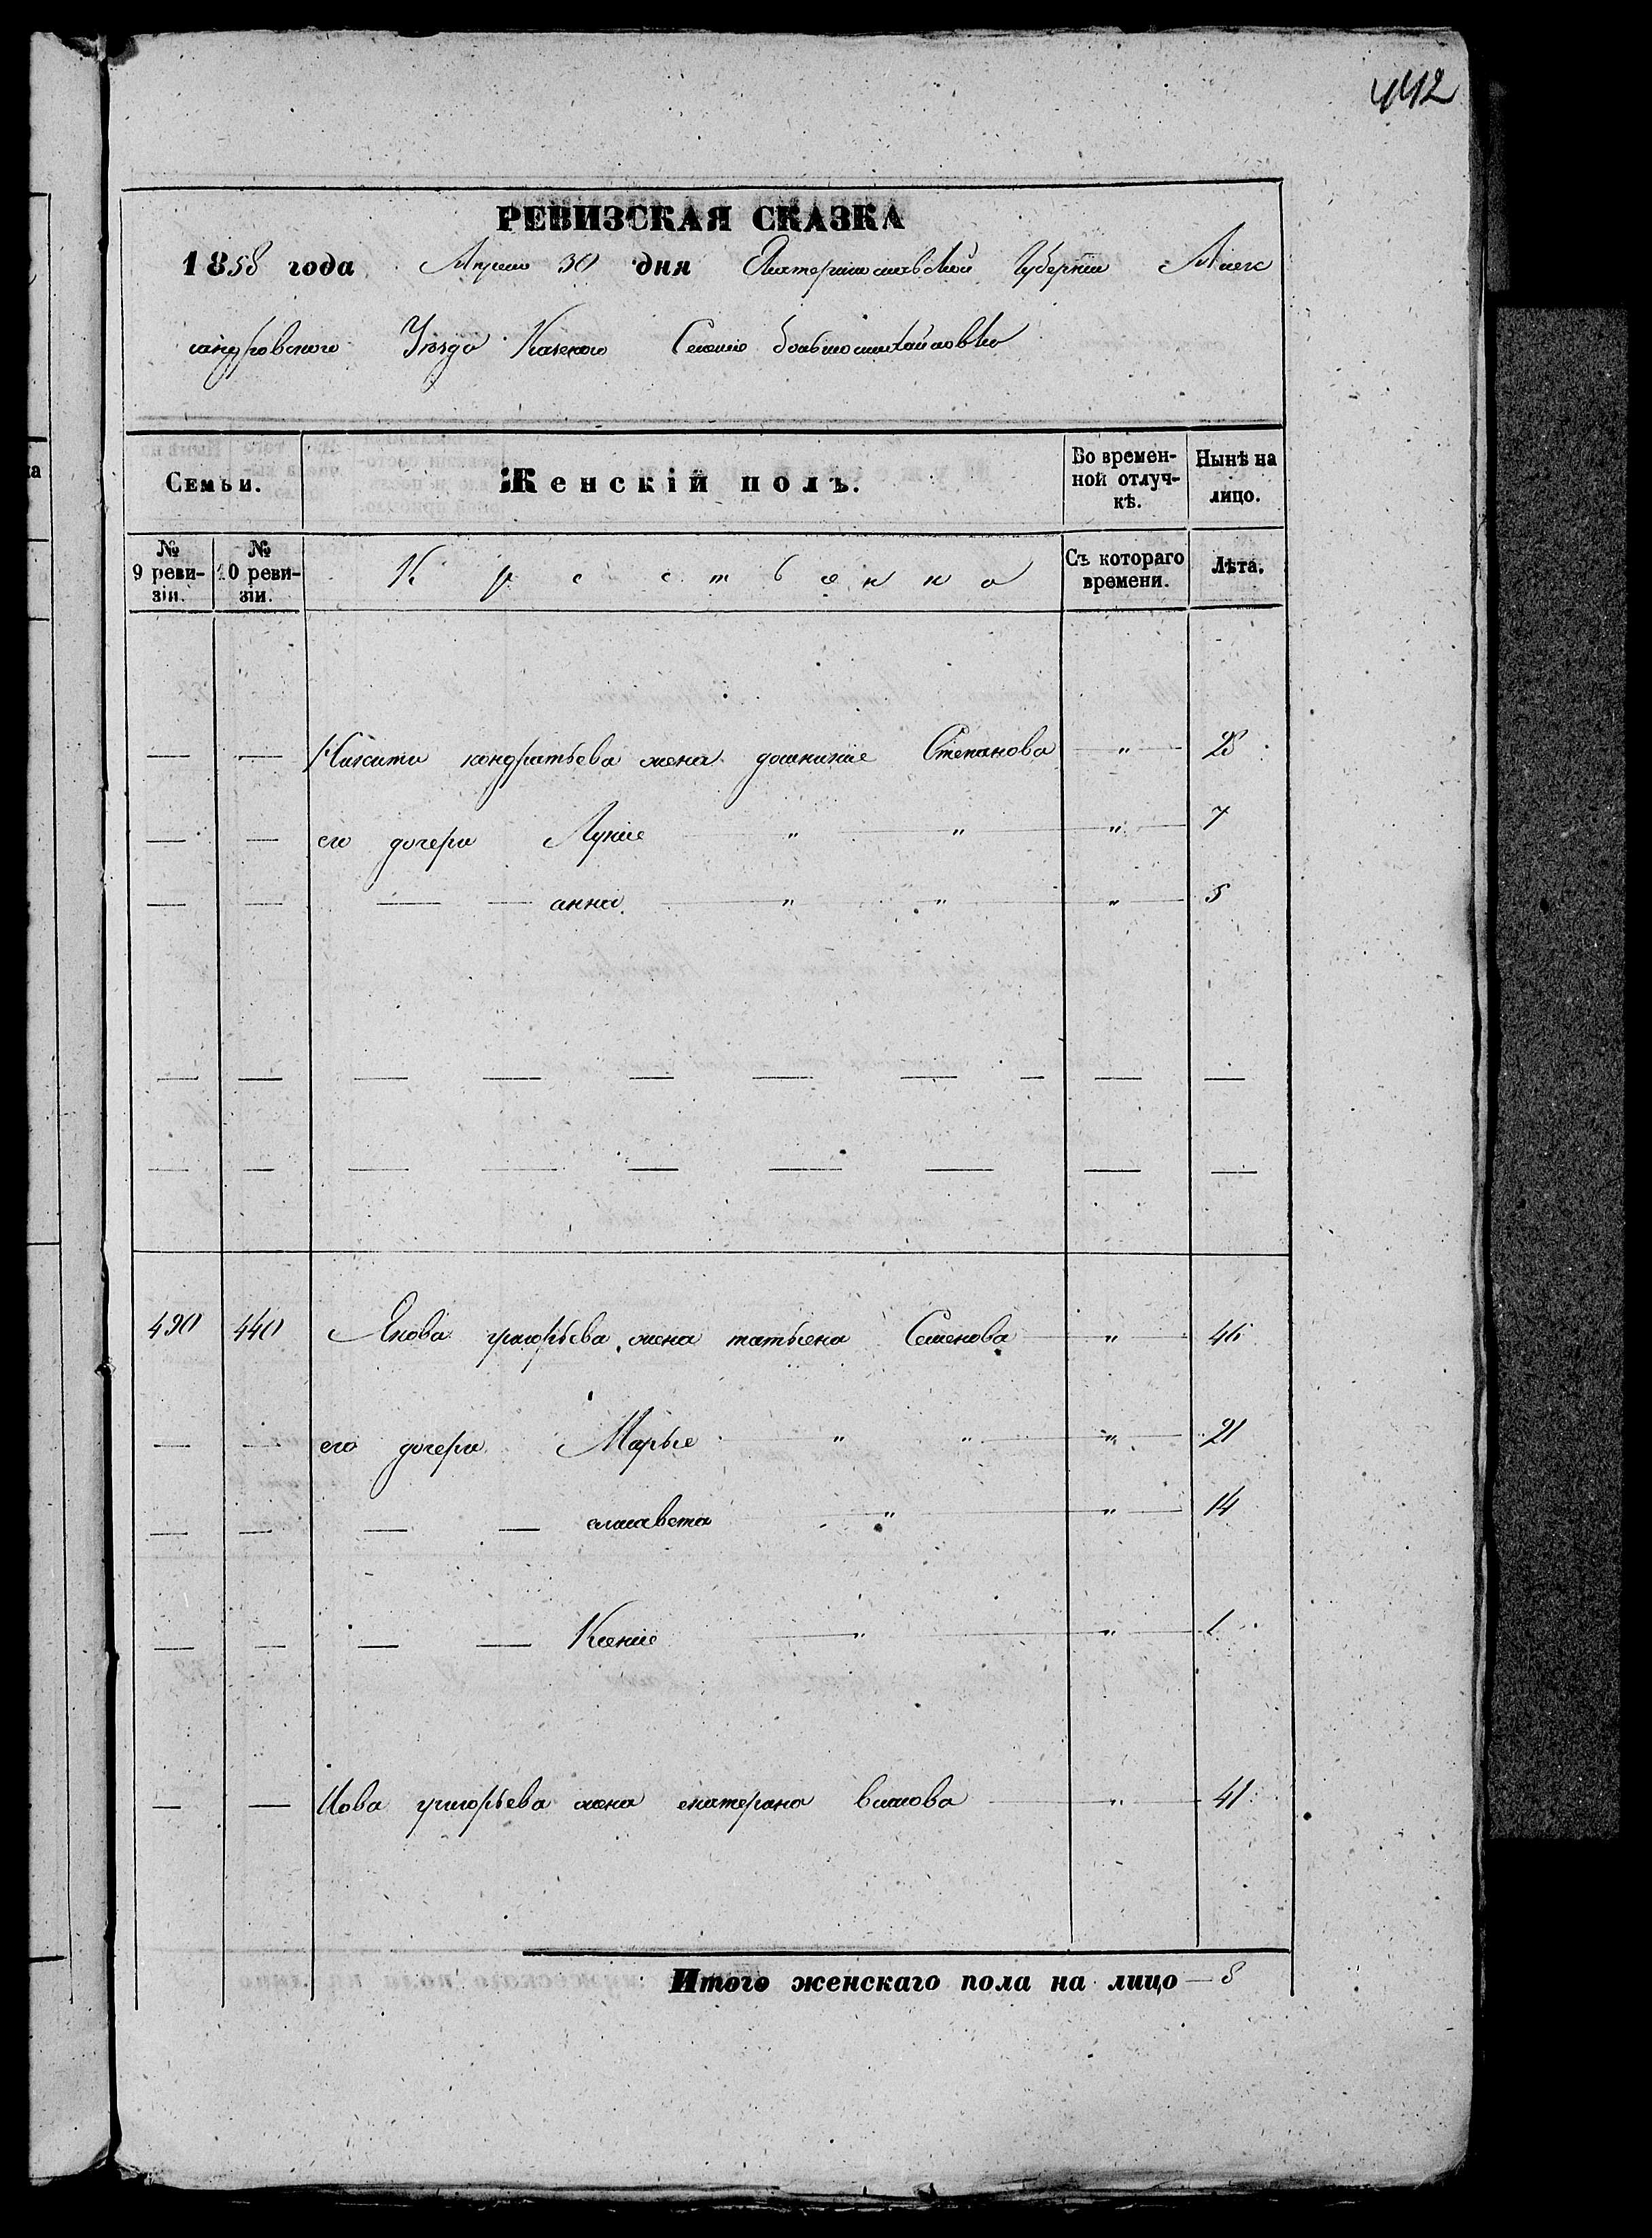 442
РЕВИЗСКАЯ СКАЗКА
1858 года Апреля 30 дня Екатеринославской Губернiи Алек
сандровского Уезда Казеного Селенiя большемихайловки
Семьи. Женскiй полъ. Во времен- Нынѣ на
ной отлуч- лицо.
кѣ.
№ № Крестьянка Съ котораго Лѣта.
9 реви- 10 реви- времени.
зiи. зiи.
— — Никити кондратьева жена домникiе Степанова " 28
— — его дочери Лукiе " " " 7
— — — — анна " " " 5
— — — — — — — — — —
— — — — — — — — —
490 440 Якова григорьева жена татьена Семенова " 46
— — его дочери Марье " " " 21
— — — — елисавета " " 14
— — — — Ксенiе " " 1
— — Иова григорьева жена екатерина " 41
Итого женскаго пола на лицо — 8